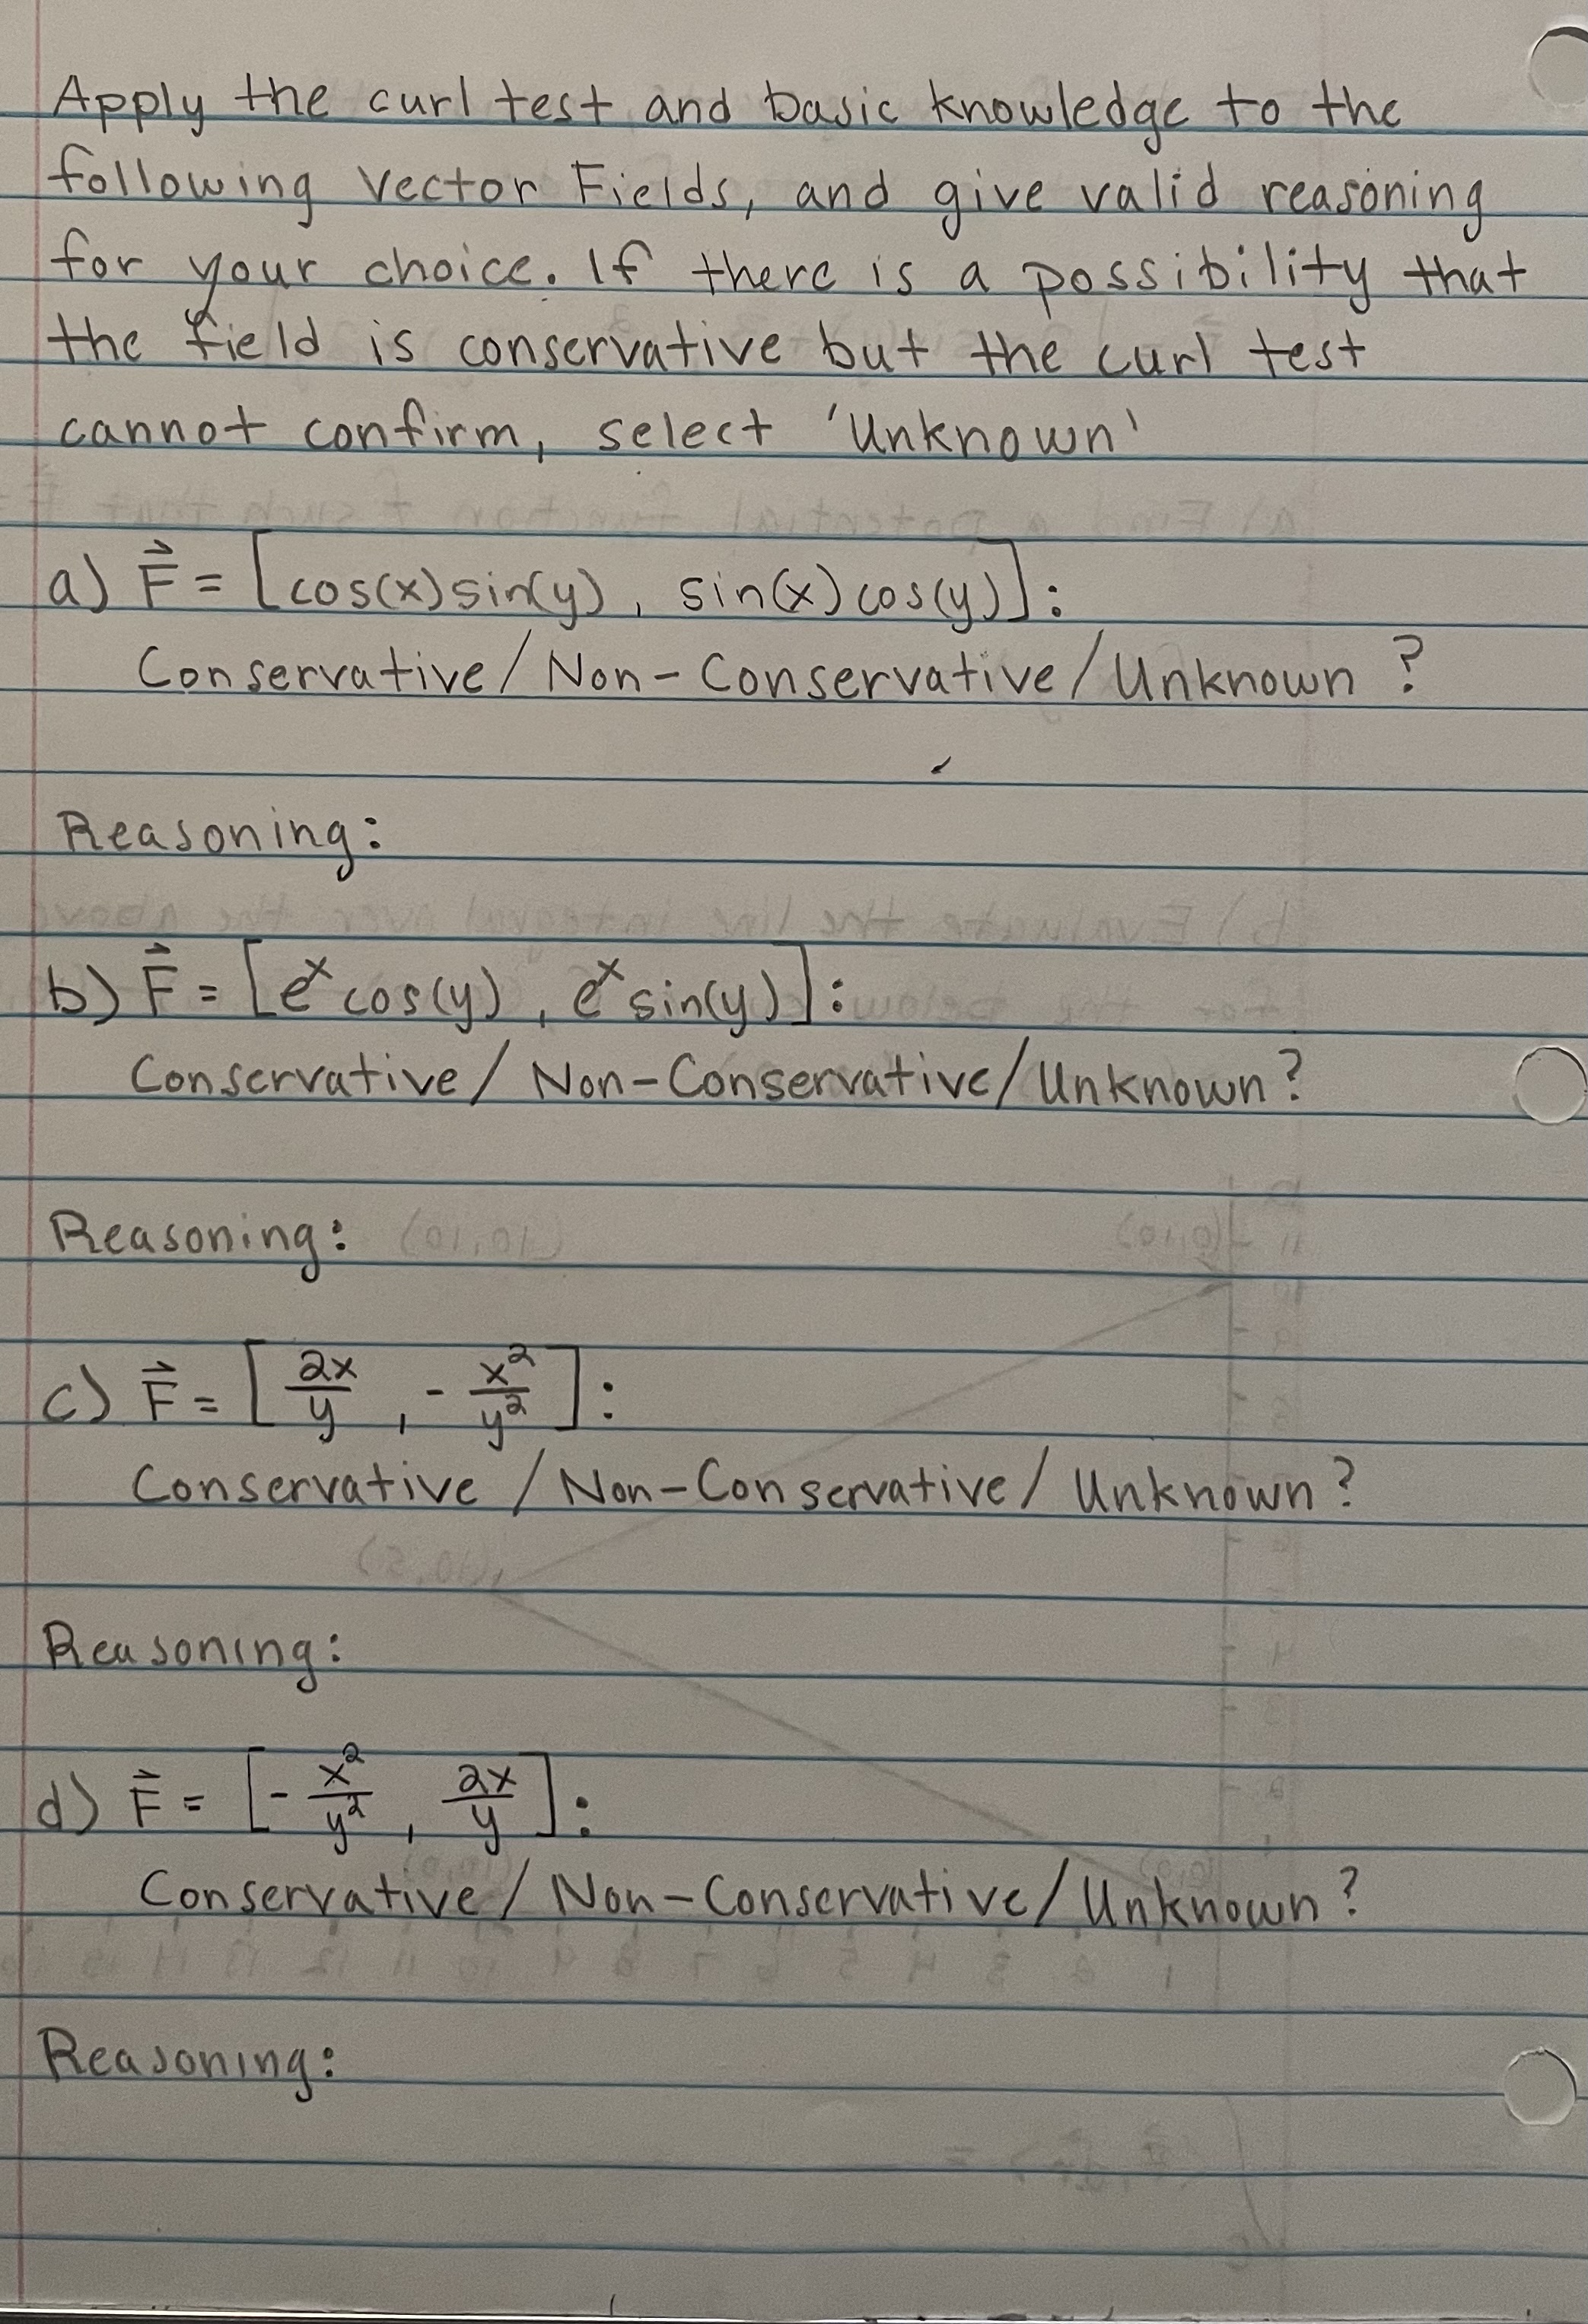 Apply the curl test and basic knowledge to the
following Vector Fields, and give valid reasoning
for your choice. If there is a possibility that
the field is conservative but the curl test
cannot confirm, select 'Unknown'
a) F⃗ = [cos(x)sin(y), sin(x)cos(y)]:
Conservative/Non-Conservative/Unknown?
Reasoning:
b) F⃗ = [eˣcos(y), eˣsin(y)]:
Conservative/Non-Conservative/Unknown?
Reasoning:
c) F⃗ = [2x/y, -x²/y²]:
Conservative/Non-Conservative/Unknown?
Reasoning:
d) F⃗ = [-x²/y², 2x/y]:
Conservative/Non-Conservative/Unknown?
Reasoning: